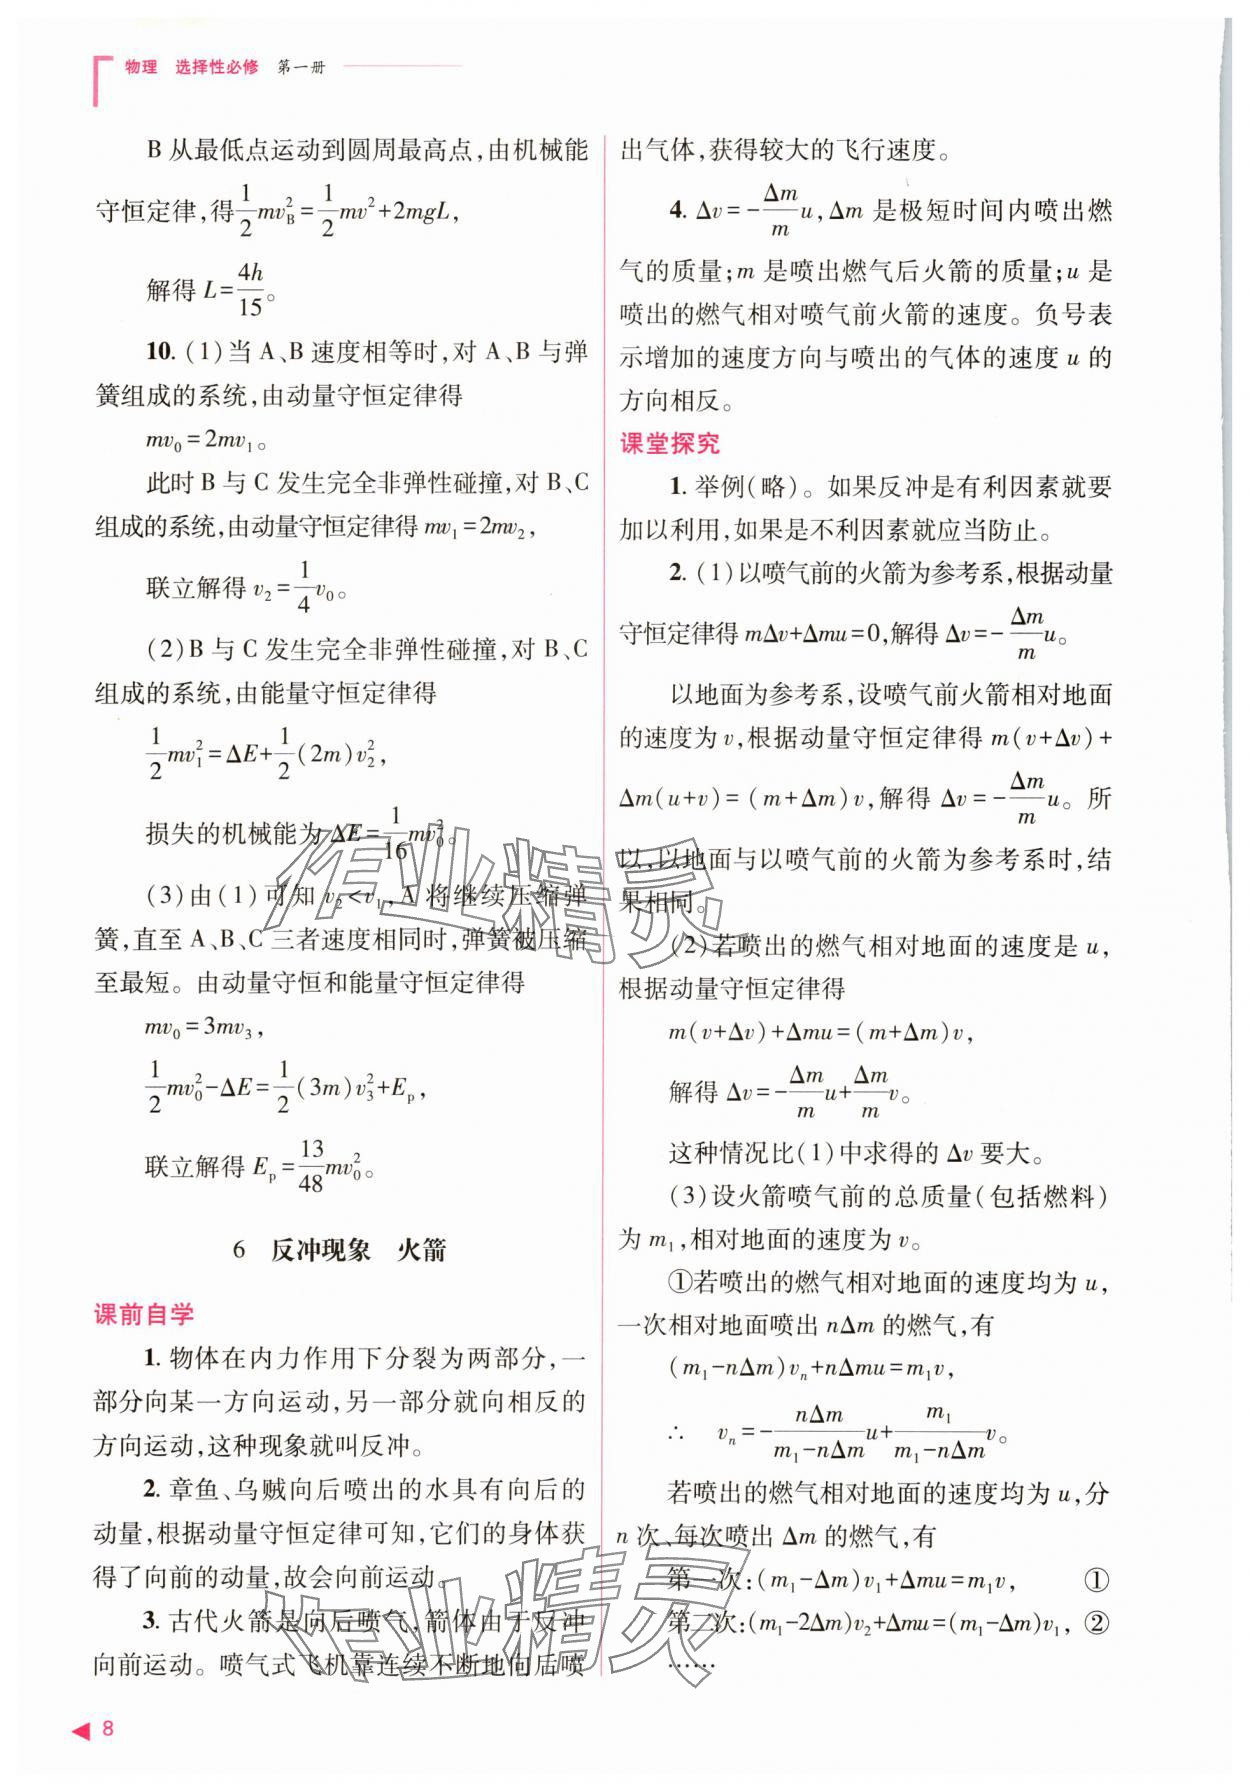 物理 选择性必修 第一册
B 从最低点运动到圆周最高点,由机械能
守恒定律,得\frac{1}{2}mv_B^2=\frac{1}{2}mv^2+2mgL,
解得 L=\frac{4h}{15}。
10. (1)当 A、B 速度相等时,对 A、B 与弹
簧组成的系统,由动量守恒定律得
mv_0=2mv_1。
此时 B 与 C 发生完全非弹性碰撞,对 B、C
组成的系统,由动量守恒定律得 mv_1=2mv_2,
联立解得 v_2=\frac{1}{4}v_0。
(2)B 与 C 发生完全非弹性碰撞,对 B、C
组成的系统,由能量守恒定律得
\frac{1}{2}mv_1^2=ΔE+\frac{1}{2}(2m)v_2^2,
损失的机械能为 ΔE=\frac{1}{16}mv_0^2。
(3)由(1)可知 v_2<v_1,A 将继续压缩弹
簧,直至 A、B、C 三者速度相同时,弹簧被压缩
至最短。由动量守恒和能量守恒定律得
mv_0=3mv_3,
\frac{1}{2}mv_0^2-ΔE=\frac{1}{2}(3m)v_3^2+E_p,
联立解得 E_p=\frac{13}{48}mv_0^2。
6 反冲现象 火箭
课前自学
1. 物体在内力作用下分裂为两部分,一
部分向某一方向运动,另一部分就向相反的
方向运动,这种现象就叫反冲。
2. 章鱼、乌贼向后喷出的水具有向后的
动量,根据动量守恒定律可知,它们的身体获
得了向前的动量,故会向前运动。
3. 古代火箭是向后喷气,箭体由于反冲
向前运动。喷气式飞机靠连续不断地向后喷
出气体,获得较大的飞行速度。
4. Δv=-\frac{Δm}{m}u,Δm 是极短时间内喷出燃
气的质量;m 是喷出燃气后火箭的质量;u 是
喷出的燃气相对喷气前火箭的速度。负号表
示增加的速度方向与喷出的气体的速度 u 的
方向相反。
课堂探究
1. 举例(略)。如果反冲是有利因素就要
加以利用,如果是不利因素就应当防止。
2. (1)以喷气前的火箭为参考系,根据动量
守恒定律得 mΔv+Δmu=0,解得 Δv=-\frac{Δm}{m}u。
以地面为参考系,设喷气前火箭相对地面
的速度为 v,根据动量守恒定律得 m(v+Δv)+
Δm(u+v)=(m+Δm)v,解得 Δv=-\frac{Δm}{m}u。所
以,以地面与以喷气前的火箭为参考系时,结
果相同。
(2)若喷出的燃气相对地面的速度是 u,
根据动量守恒定律得
m(v+Δv)+Δmu=(m+Δm)v,
解得 Δv=-\frac{Δm}{m}u+\frac{Δm}{m}v。
这种情况比(1)中求得的 Δv 要大。
(3)设火箭喷气前的总质量(包括燃料)
为 m_1,相对地面的速度为 v。
①若喷出的燃气相对地面的速度均为 u,
一次相对地面喷出 nΔm 的燃气,有
(m_1-nΔm)v_n+nΔmu=m_1v,
∴ v_n=-\frac{nΔm}{m_1-nΔm}u+\frac{m_1}{m_1-nΔm}v。
若喷出的燃气相对地面的速度均为 u,分
n 次、每次喷出 Δm 的燃气,有
第一次:(m_1-Δm)v_1+Δmu=m_1v, ①
第二次:(m_1-2Δm)v_2+Δmu=(m_1-Δm)v_1, ②
……
8
作业精灵
作业精灵